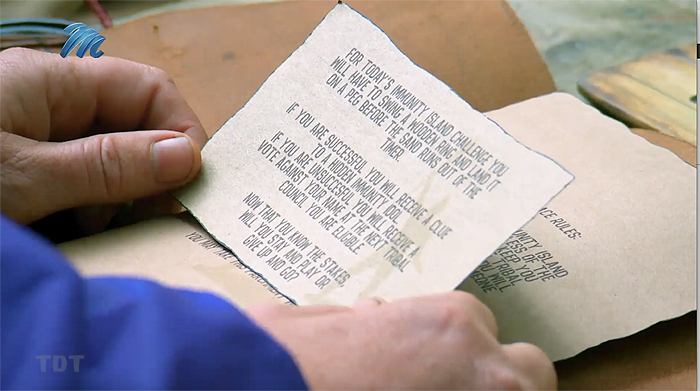 FOR TODAY'S IMMUNITY ISLAND CHALLENGE YOU
WILL HAVE TO SWING A WOODEN RING AND LAND IT
ON A PEG BEFORE THE SAND RUNS OUT OF THE
TIMER.
IF YOU ARE SUCCESSFUL YOU WILL RECEIVE A CLUE
TO A HIDDEN IMMUNITY IDOL.
IF YOU ARE UNSUCCESFUL YOU WILL RECEIVE A
VOTE AGAINST YOUR NAME AT THE NEXT TRIBAL
COUNCIL YOU ARE ELIGIBLE
NOW THAT YOU KNOW THE STAKES,
WILL YOU STAY AND PLAY OR
GIVE UP AND GO?
RULES:
ISLAND
OF THE
YOU
TRIBAL
WILL
YOU MAY
TDT